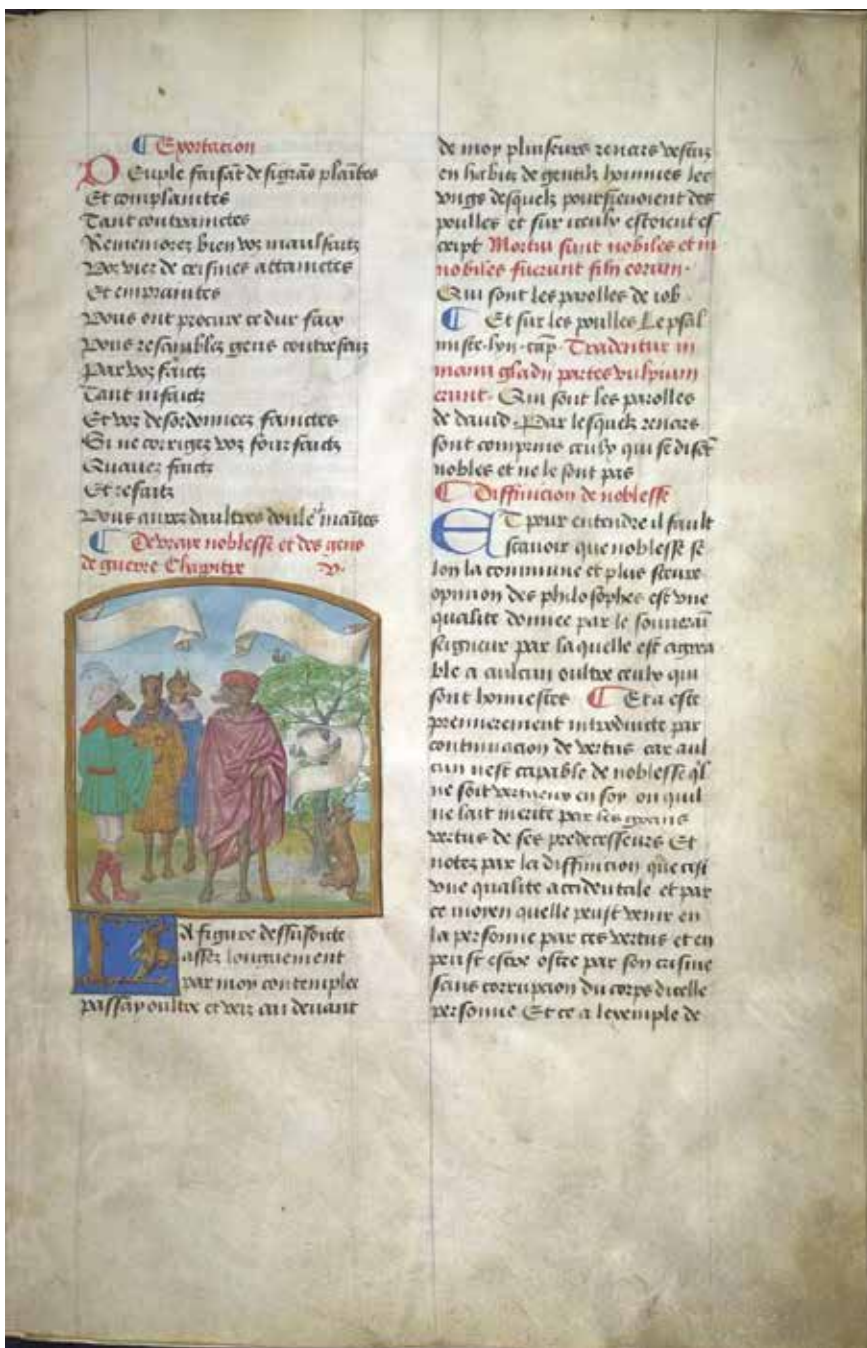 ¶ Exortacion
Peuple faisāt de si grās plaītes
Et complaintes
Tant contraintes
Rememorez bien voz maulfaitz
Voz vies de crismes attaintes
Et empraintes
Vous ont procure ce dur faix
Vous resamblez gens contrefaiz
Par voz faictz
Tant infaictz
Et voz desordonnees faintes
Si ne corrigez voz fourfaictz
Et refaitz
Vous aurez daultres doule mātes
¶ De vraye noblesse et des gens
de guerre Chapitre v.
LA figure dessusdicte
assez longuement
par moy contemplee
passay oultre et veiz au devant
de moy pluiseurs renars vestuz
en habiz de gentilz hommes les
ungs desquelz poursievoient des
poulles et sur iceulx estoient es
cript Mortui sunt nobiles et in
nobiles fuerunt filii eorum.
Qui sont les parolles de iob.
¶ Et sur les poulles Le psal
miste. lxii. cap. Tradentur in
manu gladii partes vulpium
erunt. Qui sont les parolles
de david. Par lesquelz renars
sont comprins ceulx qui se disēt
nobles et ne le sont pas
¶ Diffinicion de noblesse
ET pour entendre il fault
scavoir que noblesse se
lon la commune et plus seure
opinion des philosophes est une
qualite donnee par le souverai
seigneur par laquelle est agrea
ble a aulcun oultre ceulx qui
sont honnestes ¶ Et a este
premierement introducte par
continuacion de vertus car aul
cun nest capable de noblesse qˡl
ne soit vertueux en soy ou quil
ne lait merite par les grans
vertus de ses predecesseurs Et
notez par la diffinicion que cest
une qualite accidentale et par
ce moyen quelle peust venir en
la personne par ces vertus et en
peust estre ostee par son crisme
sans corrupcion du corps dicelle
personne Et ce a lexemple de